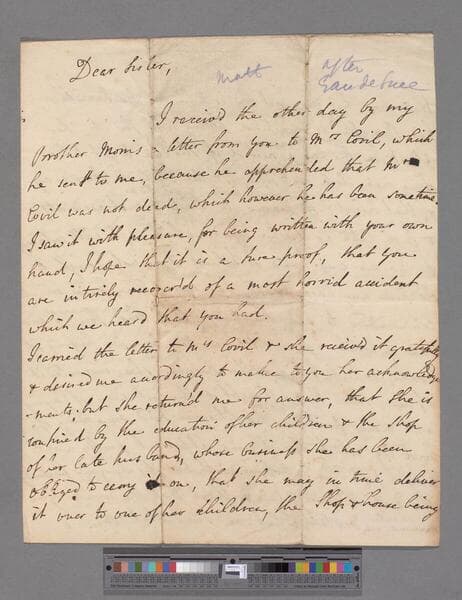 Dear Sister,
Matt
after
I receiv'd the other day by my
Brother Morris a letter from you to Mrs Covil, which
he sent to me, because he apprehended that Mrs
Covil was not dead, which however he has been sometime.
I saw it with pleasure, for being written with your own
hand, I hope that it is a sure proof, that you
are intirely recover'd of a most horrid accident
which we heard that you had.
I carried the letter to Mrs Covil & she receiv'd it gratefully
& desired me accordingly to make to you her acknowledge
-ments; but she return'd me for answer, that she is
confined by the education of her children & the shop
of her late husband, whose business she has been
obliged to carry on, that she may in time deliver
it over to one of her children, the Shop & house being